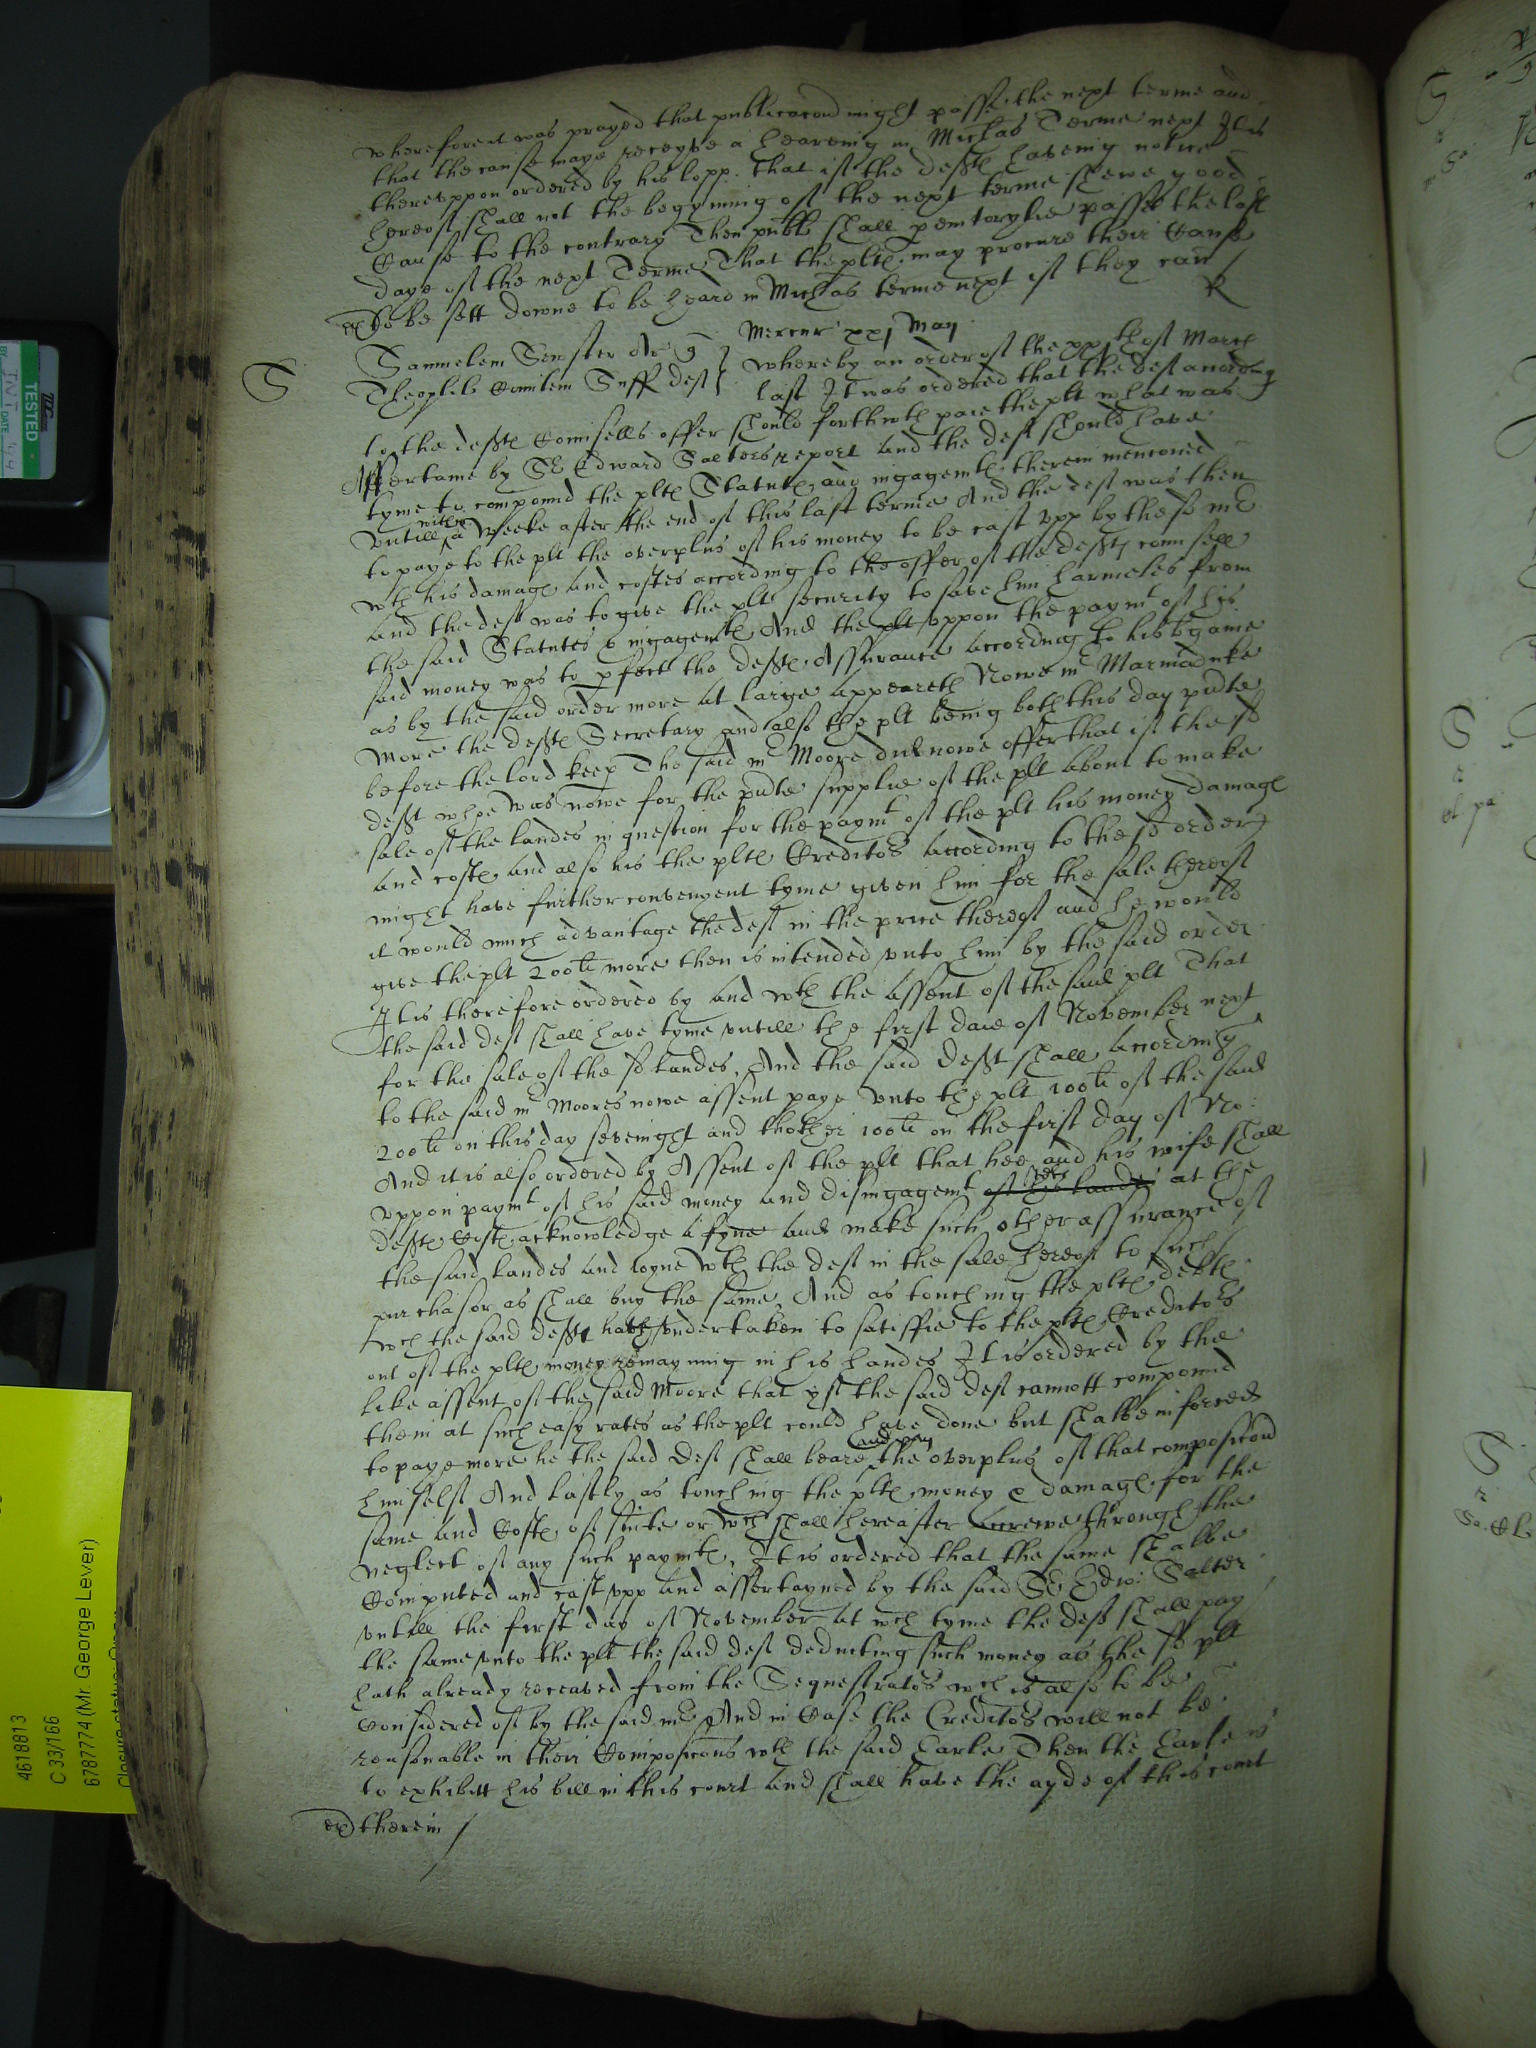 wherefore it was prayed that publicacon might passe the next terme and
that the cause maye receyve a heareing in Michas Terme next It is
thereuppon ordered by his lopp. that if the defts haveing notice
hereof shall not the begynning of the next terme shewe good
Cause to the contrary Then publ shall peremtorylie passe the last
daye of the next Terme That the plts may procure their Cause
ex So be sett downe to be heard in Michas terme next if they can / R
Mercur xxj May
S
Samuelem Ar q
Theophil Comitem Suff deft
Whereby an order of the xxjth of March
last It was ordered that the deft according
to the defts Counsells offer should forthwth paie the plt what was
Assertaine by Sr Edward Salters report and the deft should have
tyme to compound the plts Statuts and ingagemts therein mencioned
untill within a Weeke after the end of this last terme And the deft was then
to paye to the plt the overplus of his money to be cast upp by the sd mr
wth his damags and costes according to the offer of the defts counsell
and the deft was to give the plt security to save him harmeles from
the said Statutes & ingagemts And the plt uppon the paymt of his
said money was to pfect the defts Assurance according to his bgaine
as by the said order more at large appeareth Nowe mr Marmaduke
More the defts Secretary and also the plt being both this day psente
before the lord keep The said mr Moore did nowe offer that if the sd
deft whoe was nowe for the psente supplie of the plt about to make
sale of the landes in question for the paymt of the plt his money damags
and costs and also his the plts Creditors according to the sd order
might have further convenyent tyme given him for the sale thereof
it would much advantage the deft in the price thereof and he would
give the plt 200li more then is intended unto him by the said order
It is therefore ordered by and wth the assent of the said plt That
the said deft shall have tyme untill the first daie of November next
for the sale of the sd landes, And the said Deft shall according
to the said mr Moores nowe assent paye unto the plt 100li of the said
200li on this day sevenight and thother 100li on the first day of No:
And it is also ordered by Assent of the plt that hee and his wife shall
uppon paymt of his said money and disingagemt of his landes at the
defts Costs acknowledge a fyne and make such other assurance of
the said landes and ioyne wth the deft in the sale hereof to such
purchasor as shall buy the same And as touching the plts debts
wch the said deft hath undertaken to satisfie to the plts Creditors
out of the plts money remayning in his handes It is ordered by the
like assent of the said Moore that yf the said deft cannott compound
them at such easy rates as the plt could have done but shalbe inforced
to paye more he the said deft shall beare and pay the overplus of that composicon
himself And lastly as touching the plts money & damags for the
same and Costs of suite or wch shall hereafter accrewe through the
neglect of any such paymts, It is ordered that the same shalbe
Computed and cast upp and assertayned by the said Sr Edw: Salter
untill the first day of November at wch tyme the deft shall pay
the same unto the plt the said deft deducting such money as the sd plt
hath already receaved from the Sequestrators wch is also to be
considered of by the said mr And in Case the Creditors will not be
reasonable in their Composicons wth the said Earle Then the Earle is
to exhibitt his bill in this court and shall have the ayde of this court
ex therein /
TESTED
DATE
4618813
C 33/166
6787774 (Mr. George Lever)
S
S